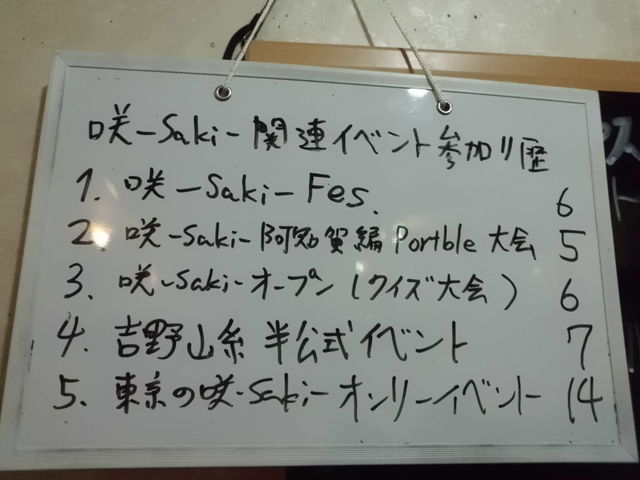 咲-Saki-関連イベント参加リ歴
1. 咲-Saki-Fes. 6
2. 咲-Saki-阿知賀編 Portble 大会 5
3. 咲-Saki-オープン(クイズ大会) 6
4. 吉野山系 半公式イベント 7
5. 東京の咲-Saki-オンリーイベント 14